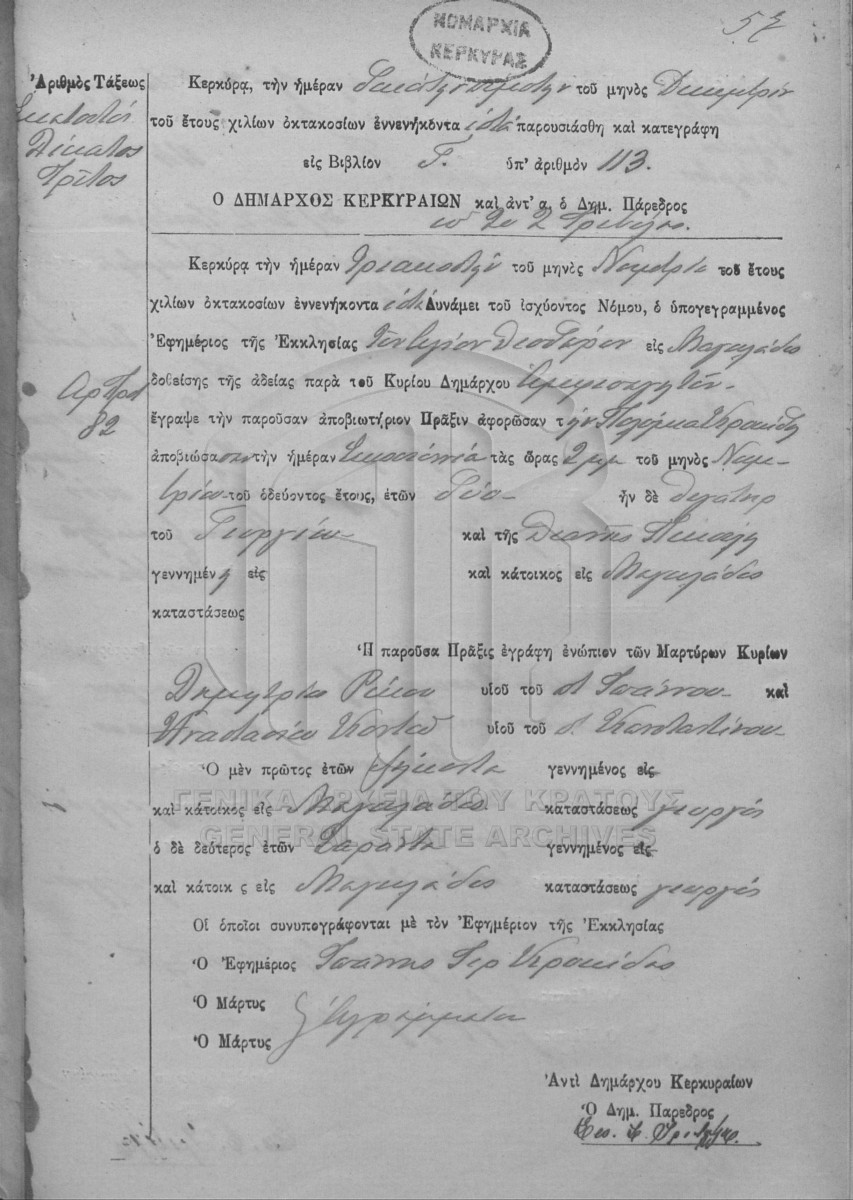 ΝΟΜΑΡΧΙΑ
ΚΕΡΚΥΡΑΣ
57
Ἀριθμὸς Τάξεως
Ἑκατοστός
Δέκατος
Τρίτος
Κερκύρᾳ, τὴν ἡμέραν τοῦ μηνὸς Δεκεμβρίου
τοῦ ἔτους χιλίων ὀκτακοσίων ἐννενήκοντα ἑπτὰ παρουσιάσθη καὶ κατεγράφη
εἰς Βιβλίον Γ. ὑπ' ἀριθμὸν 113.
Ο ΔΗΜΑΡΧΟΣ ΚΕΡΚΥΡΑΙΩΝ καὶ ἀντ' α. ὁ Δημ. Πάρεδρος
Κερκύρᾳ τὴν ἡμέραν τριακοστὴν τοῦ μηνὸς Νοεμβρίου τοῦ ἔτους
χιλίων ὀκτακοσίων ἐννενήκοντα ἑπτὰ Δυνάμει τοῦ ἰσχύοντος Νόμου, ὁ ὑπογεγραμμένος
Ἐφημέριος τῆς Ἐκκλησίας τῶν Ἁγίων Θεοδώρων εἰς Μαγουλάδες
δοθείσης τῆς ἀδείας παρὰ τοῦ Κυρίου Δημάρχου
82
ἔγραψε τὴν παροῦσαν ἀποβιωτήριον Πρᾶξιν ἀφορῶσαν τὴν Κροκίδη
ἀποβιώσασαν τὴν ἡμέραν εἰκοστὴν τὰς ὥρας 2 μμ τοῦ μηνὸς Νοεμ-
βρίου τοῦ ὁδεύοντος ἔτους, ἐτῶν δύο ἦν δὲ θυγάτηρ
τοῦ Γεωργίου καὶ τῆς
γεννημένη εἰς καὶ κάτοικος εἰς Μαγουλάδες
καταστάσεως
Ἡ παροῦσα Πρᾶξις ἐγράφη ἐνώπιον τῶν Μαρτύρων Κυρίων
Δημητρίου Ρίκου υἱοῦ τοῦ π. Ἰωάννου καὶ
Ἀναστασίου Κοντοῦ υἱοῦ τοῦ π. Κωνσταντίνου
Ὁ μὲν πρῶτος ἐτῶν ἑξήκοντα γεννημένος εἰς
καὶ κάτοικος εἰς Μαγουλάδες καταστάσεως γεωργός
ὁ δὲ δεύτερος ἐτῶν σαράντα γεννημένος εἰς
καὶ κάτοικ ς εἰς Μαγουλάδες καταστάσεως γεωργός
Οἱ ὁποῖοι συνυπογράφονται μὲ τὸν Ἐφημέριον τῆς Ἐκκλησίας
Ὁ Ἐφημέριος Ἰωάννης Ἱερ. Κροκίδας
Ὁ Μάρτυς ἀγράμματοι
Ὁ Μάρτυς
Ἀντὶ Δημάρχου Κερκυραίων
Ὁ Δημ. Πάρεδρος
ΓΕΝΙΚΑ ΑΡΧΕΙΑ ΤΟΥ ΚΡΑΤΟΥΣ
GENERAL STATE ARCHIVES